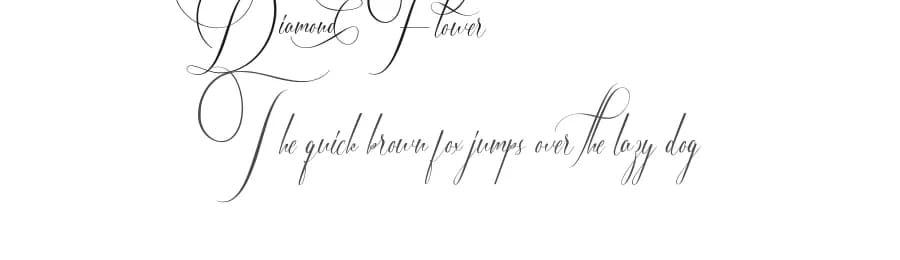 Diamond Flower
The quick brown fox jumps over the lazy dog